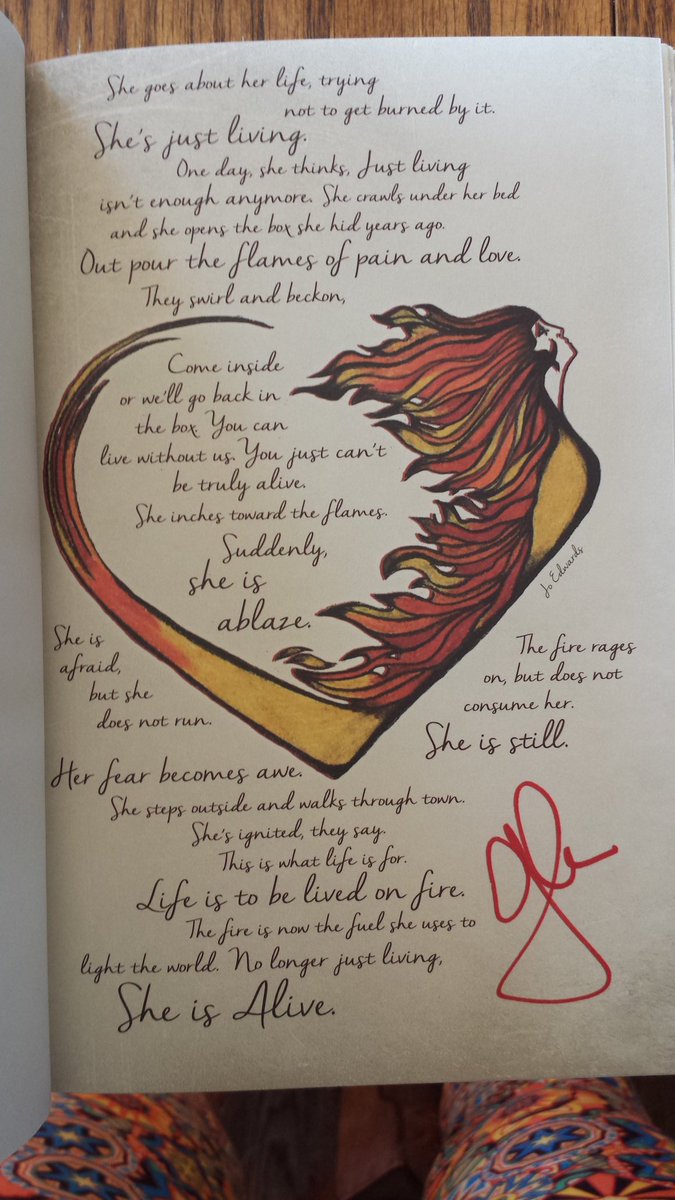 She goes about her life, trying
not to get burned by it.
She's just living.
One day, she thinks, Just living
isn't enough anymore. She crawls under her bed
and she opens the box she hid years ago.
Out pour the flames of pain and love.
They swirl and beckon,
Come inside
or we'll go back in
the box. You can
live without us. You just can't
be truly alive.
She inches toward the flames.
Suddenly,
she is
ablaze.
Jo Edwards
She is
afraid,
but she
does not run.
The fire rages
on, but does not
consume her.
She is still.
Her fear becomes awe.
She steps outside and walks through town.
She's ignited, they say.
This is what life is for.
Life is to be lived on fire.
The fire is now the fuel she uses to
light the world. No longer just living,
She is Alive.